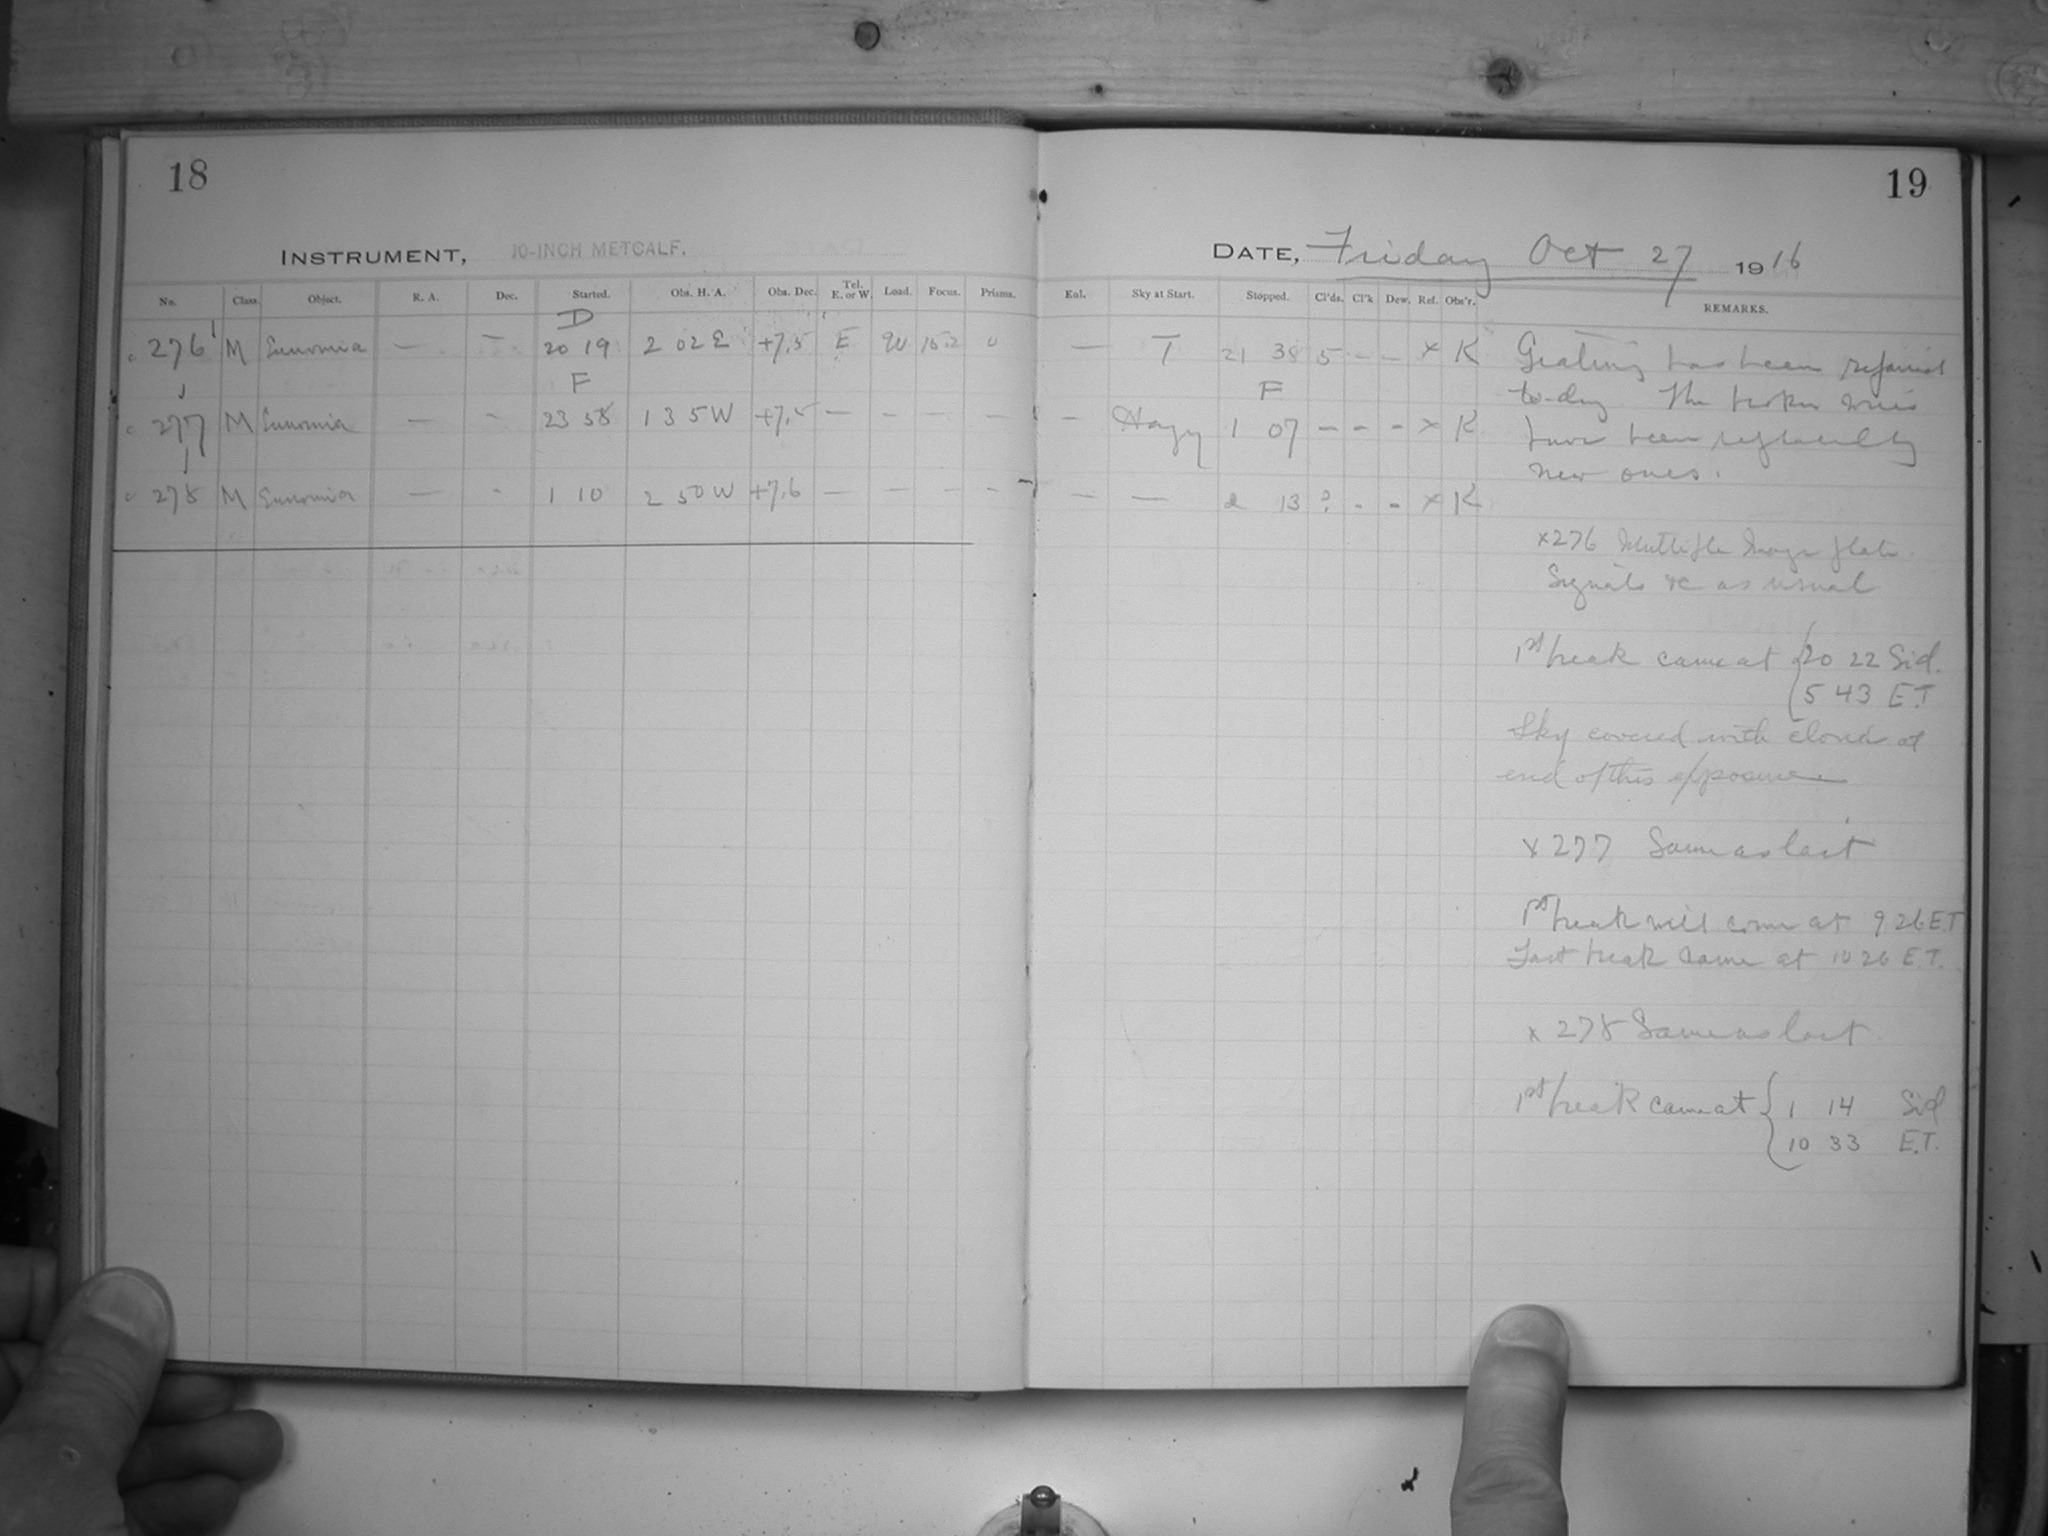 18
INSTRUMENT, 10-INCH METCALF.
No. Class. Object. R. A. Dec. Started. Obs. H. A. Obs. Dec. Tel. E. or W. Load. Focus. Prisms.
D
276 M Eunomia — — 20 19 2 02 E +7.5 E 15.2 0
F
277 M Eunomia — - 23 58 1 35 W +7.5 — - — —
278 M Eunomia — - 1 10 2 50 W +7.6 — — — -
19
DATE, Friday Oct 27 1916
Eul. Sky at Start. Stopped. Cl'ds. Cl'k Dew. Ref. Obs'r. REMARKS.
— T 21 38 5 - - x K
F
— Hazy 1 07 - - - x K
— — 2 13 ? - - x K
Grating has been repaired
to-day The broken wires
have been replaced by
new ones.
x276 Multiple Image plate.
Signals &c as usual
1st break came at 20 22 Sid.
5 43 E.T
Sky covered with cloud at
end of this exposure
x 277 Same as last
1st break will come at 9 26 E.T
Last break came at 10 26 E.T.
x 278 Same as last
1st break came at 1 14 Sid
10 33 E.T.